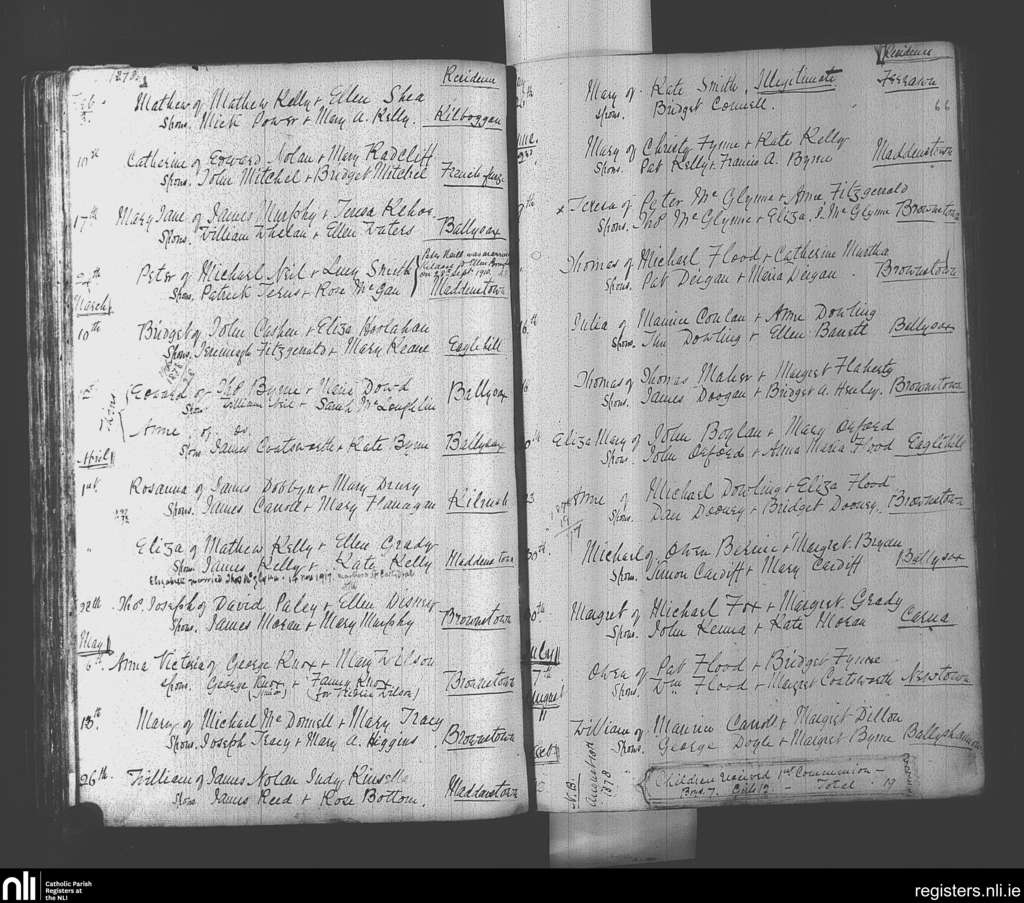 1878
Residence
Feb
Mathew of Mathew Kelly + Ellen Shea
Spons. Mick Power + Mary A. Kelly. Kilboggan
10th
Catherine of Edward Nolan + Mary Radcliff
Spons. John Mitchel + Bridget Mitchel
17th
Mary Jane of James Murphy + Teresa Kehoe
Spons. William Whelan + Ellen Waters Ballysax
Peter of Michael Neil + Lucy Smith
Spons. Patrick + Rose McGan Maddenstown
Peter Neill was married
March
10th
Bridget of John Cashen + Eliza Horlahan
Spons. Jeremiah Fitzgerald + Mary Keane Eaglehill
Twins
Edward of Thos Byrne + Maria Dowd Ballysax
Spons. William Neil + Sarah McLoughlin
Anne of do
Spons. James Coatsworth + Kate Byrne Ballysax
April
1st
Rosanna of James Dobbyn + Mary Drury
Spons. James Carroll + Mary Flanagan Kilrush
"
Eliza of Mathew Kelly + Ellen Grady
Spons. James Kelly + Kate Kelly Maddenstown
Elizabeth married Thos 1917
22th
Thos. Joseph of David Paley + Ellen Disney
Spons. James Moran + Mary Murphy Brownstown
May
6th
Anna Victoria of George Knox + Mary Wilson
Spons. George Knox + Fanny Knox Brownstown
(for Wilson)
13th
Mary of Michael McDonnell + Mary Tracy
Spons. Joseph Tracy + Mary A. Higgins Brownstown
26th.
William of James Nolan Judy Kinsella
Spons. James Reed + Rose Bottom. Maddenstown
Residence
Mary of Kate Smith, Illegitimate
Spons. Bridget Connell.
66
Mary of Christy Fynne + Kate Kelly
Spons. Pat Kelly + Francis A. Byrne Maddenstown
x Teresa of Peter McGlynne + Anne Fitzgerald
Spons. Thos McGlynne + Eliza J. McGlynne Brownstown
Thomas of Michael Flood + Catherine Murtha
Spons. Pat Deigan + Maria Deigan Brownstown
16th
Julia of Maurice Conlan + Anne Dowling
Spons. Dowling + Ellen Barrett Ballysax
Thomas of Thomas Maher + Margret Flaherty
Spons. James Doogan + Bridget A. Healy. Brownstown
Eliza Mary of John Boylan + Mary Oxford
Spons. John Oxford + Anna Maria Flood Eaglehill
23
Anne of Michael Dowling + Eliza Flood
Spons. Dan Dooney + Bridget Dooney. Brownstown
30th.
Michael of Owen Beirne + Margret Bryan
Spons. Simon Cardiff + Mary Cardiff Ballysax
30th
Margret of Michael Fox + Margret Grady
Spons. John Kenna + Kate Moran Carna
July
7th
Owen of Pat Flood + Bridget Fynne
Spons. Wm Flood + Margret Coatsworth Newtown
August
11
William of Maurice Carroll + Margret Dillon
Spons. George Doyle + Margret Byrne Ballyshannon
N.B.
August 1878
Children received 1st Communion -
Boys. 7. Girls 12 - Total. 19
nli
Catholic Parish
Registers at
the NLI
registers.nli.ie